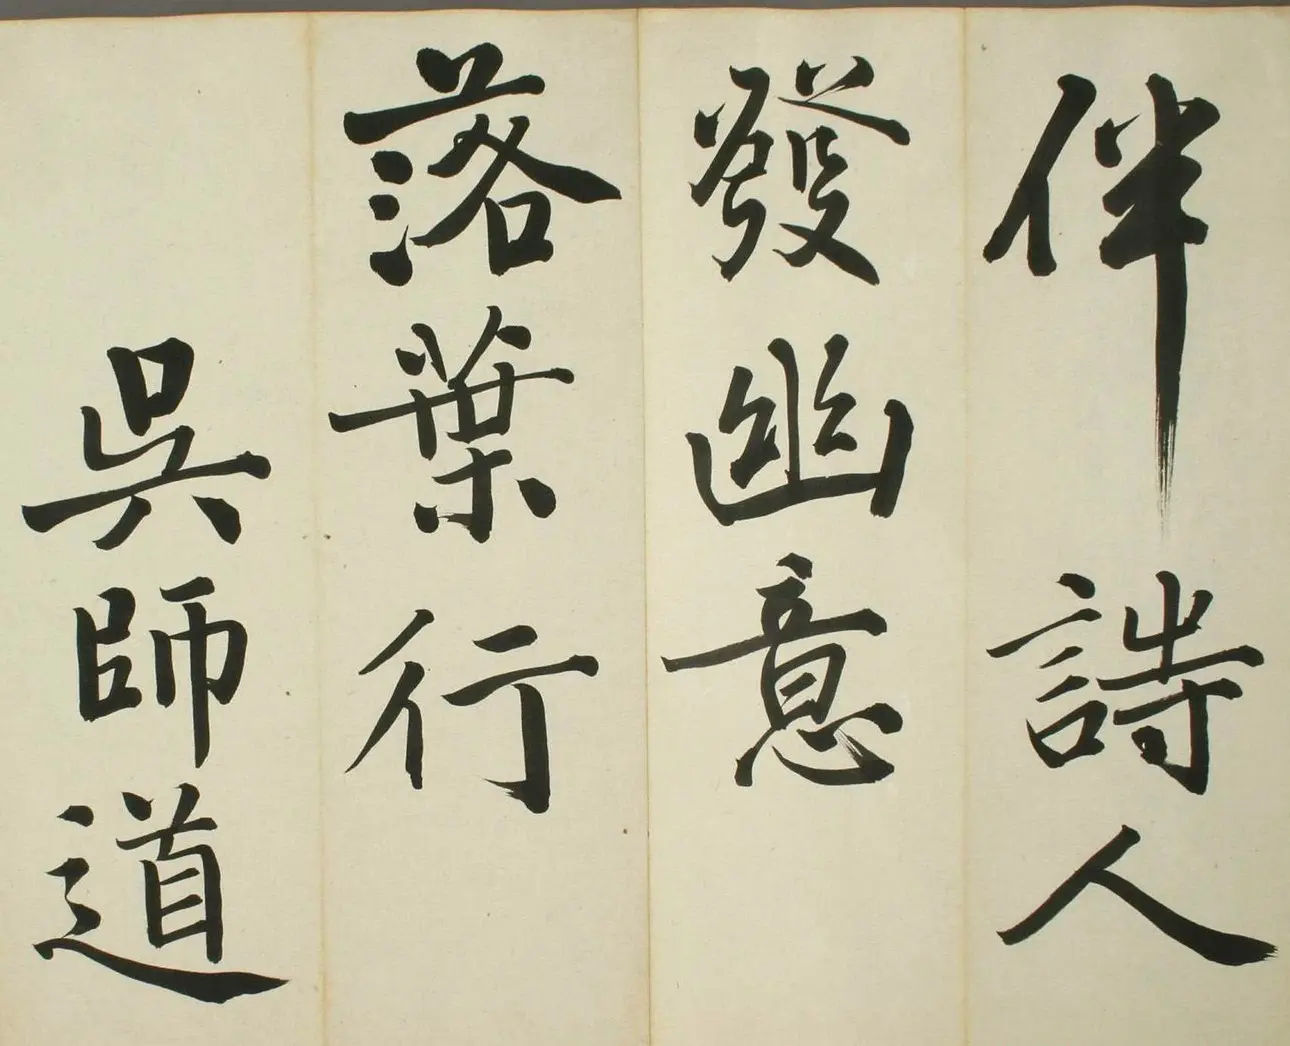 伴詩人
發幽意
落葉行
吳師道